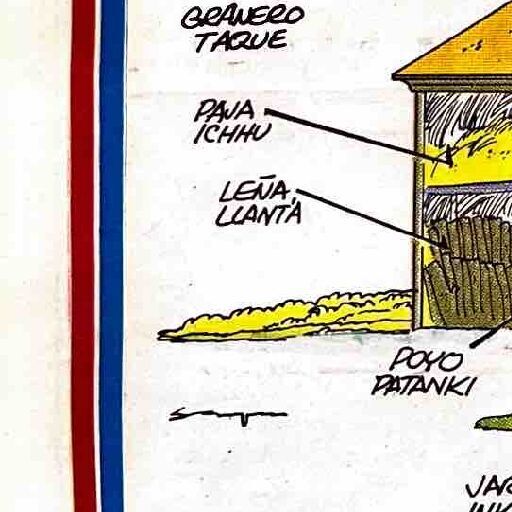 GRANERO
TAQUE
PAJA
ICHHU
LEÑA,
LLANTA
POYO
PATANKI